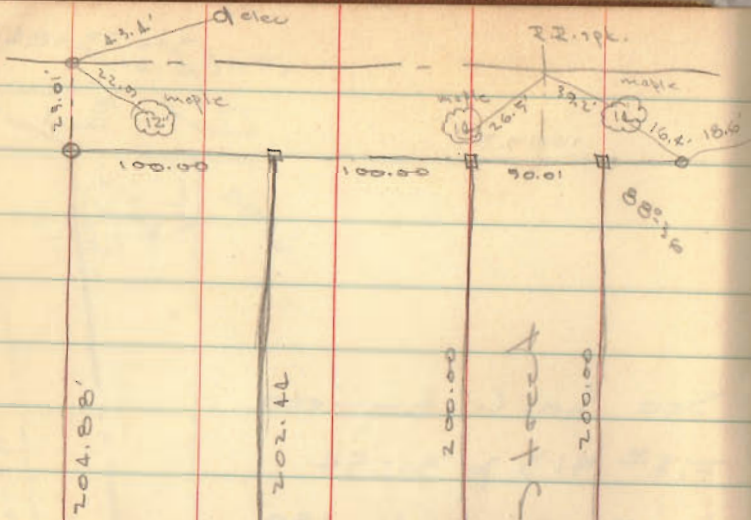 43.4'
elec
R.R. spk.
22.9
maple
12"
25.01'
maple
26.5'
39.2'
maple
16.4'
18.6'
100.00
100.00
50.01
88°36
204.88'
202.44
200.00
Street
200.00